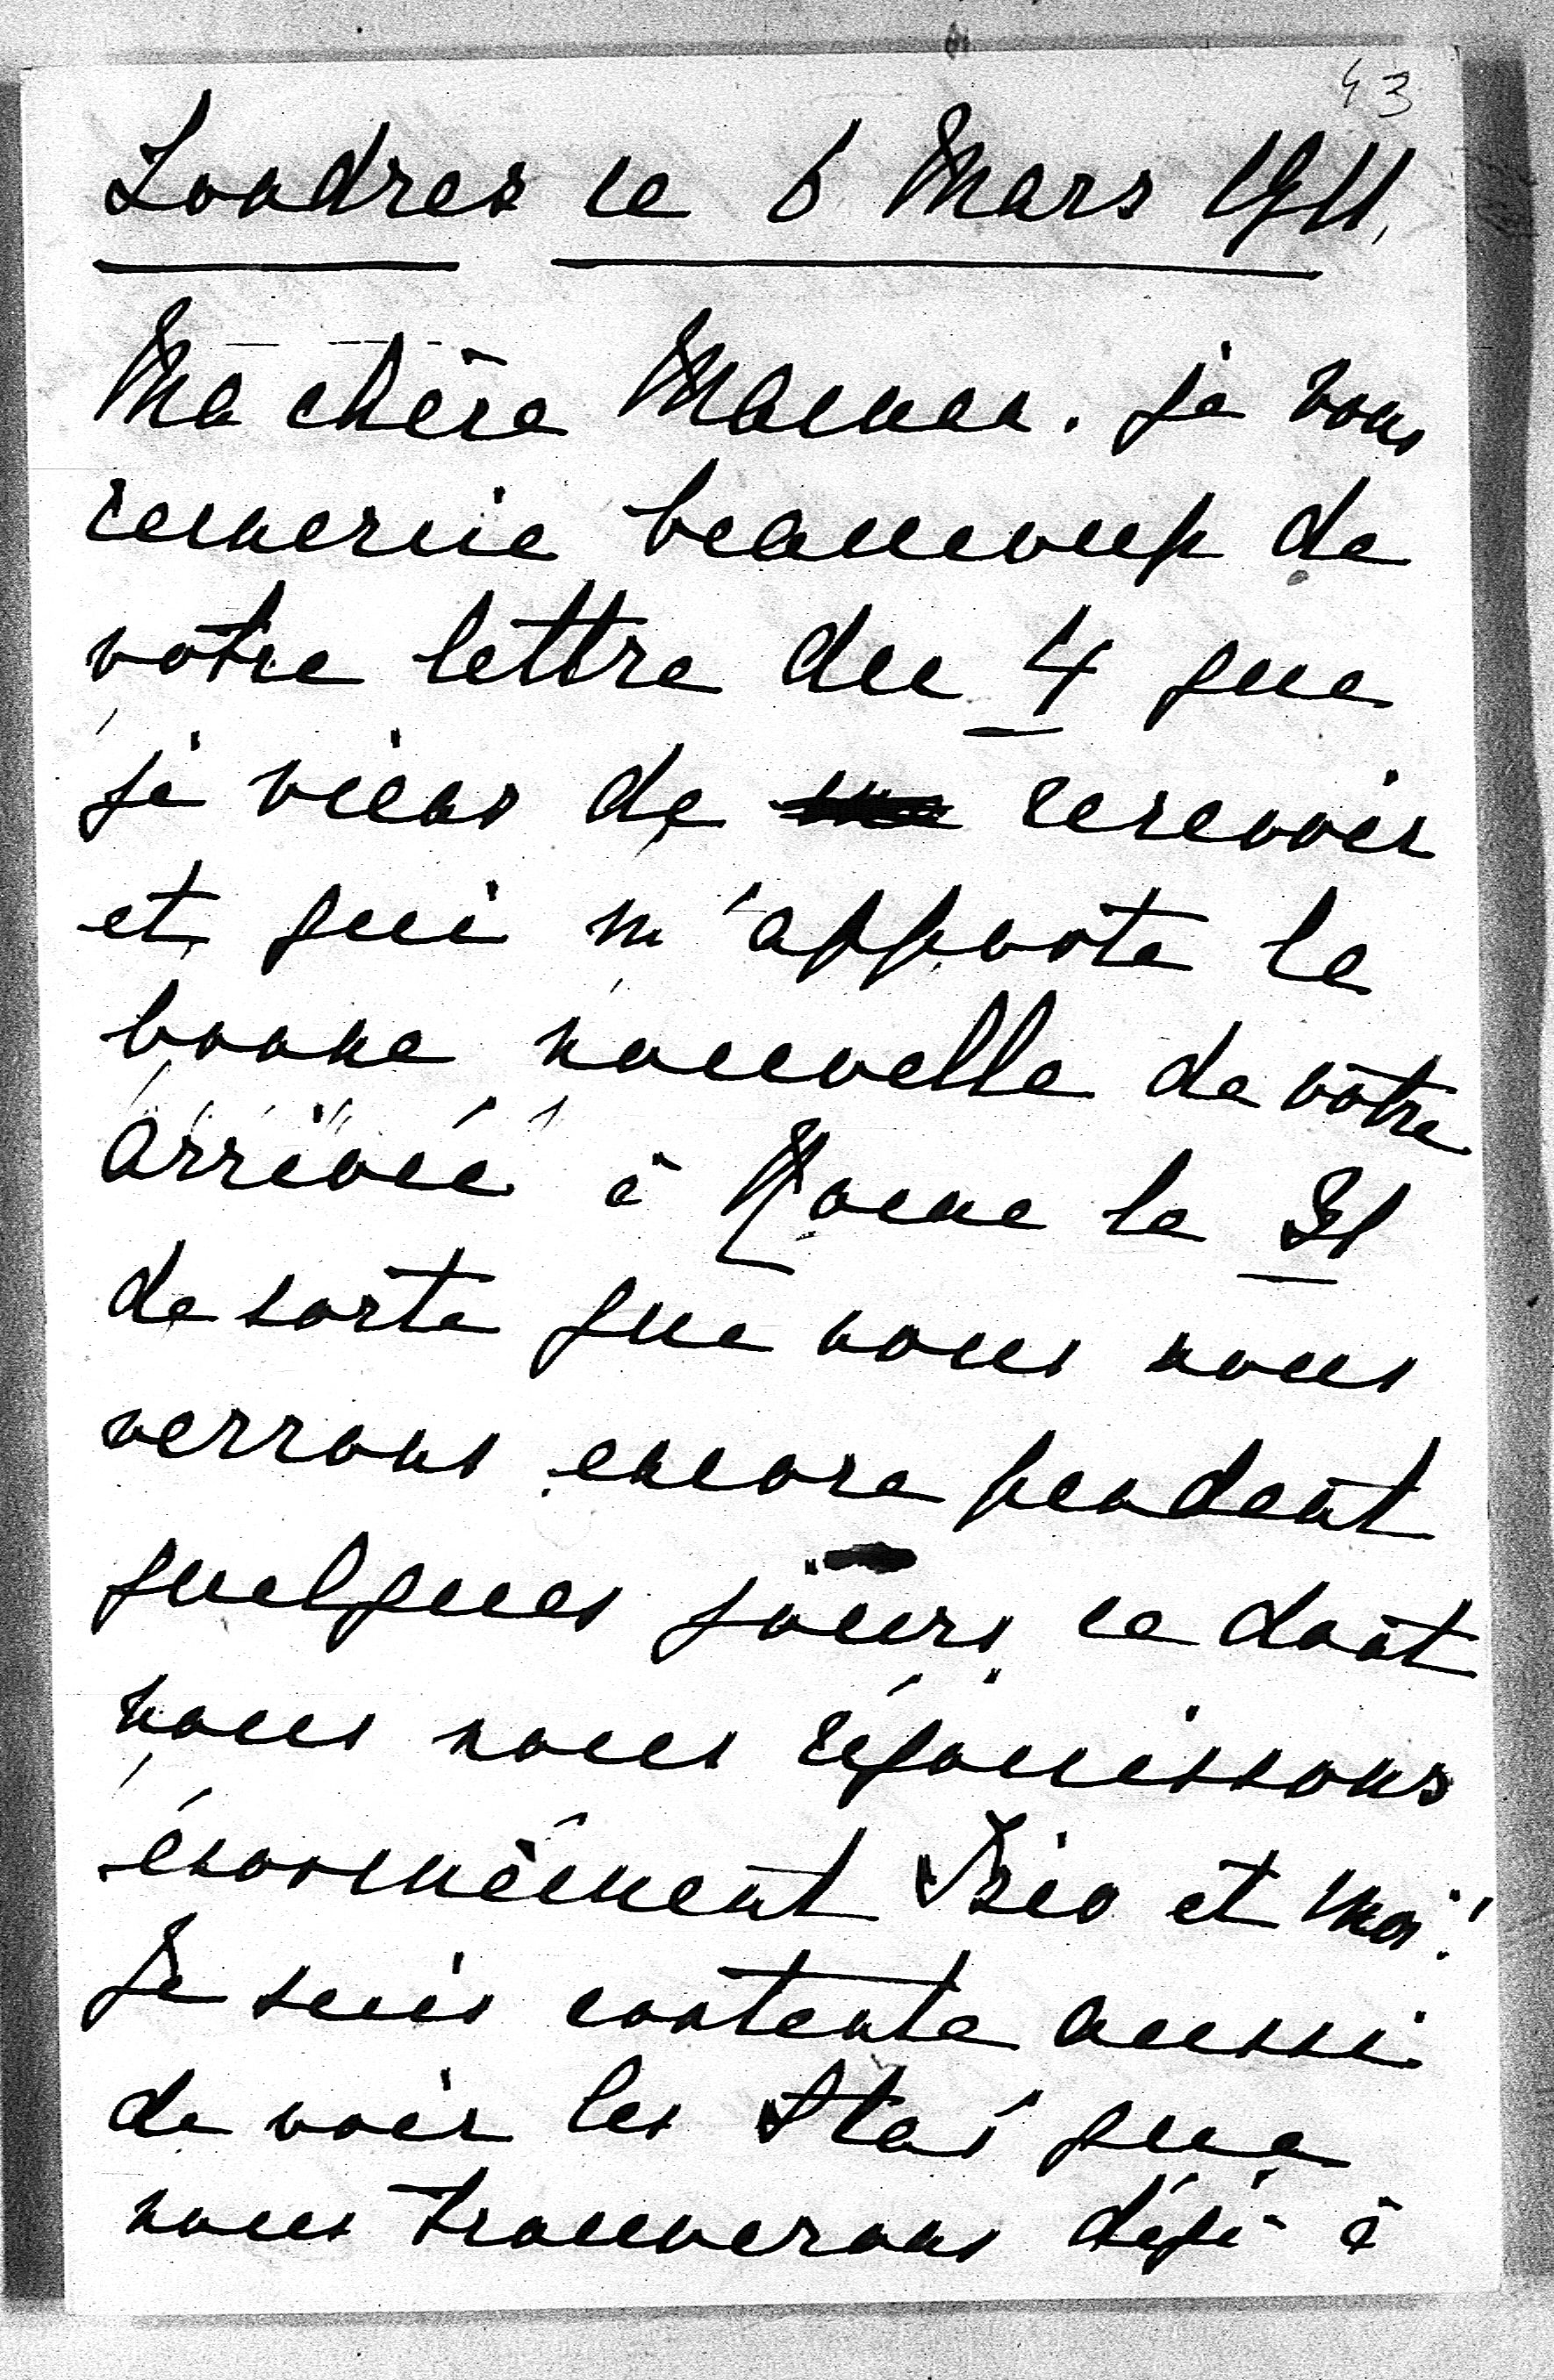 43
Londres ce 6 Mars 1911,
Ma chère Maman. je vous
remercie beaucoup de
votre lettre du 4 que
je viens de recevoir
et qui m'apporte la
bonne nouvelle de votre
arrivée à Rome le 31
de sorte que nous nous
verrons encore pendant
quelques jours, ce dont
nous nous réjouissons
énormément et moi!
Je suis contente aussi
de voir les que
nous trouverons déjà à